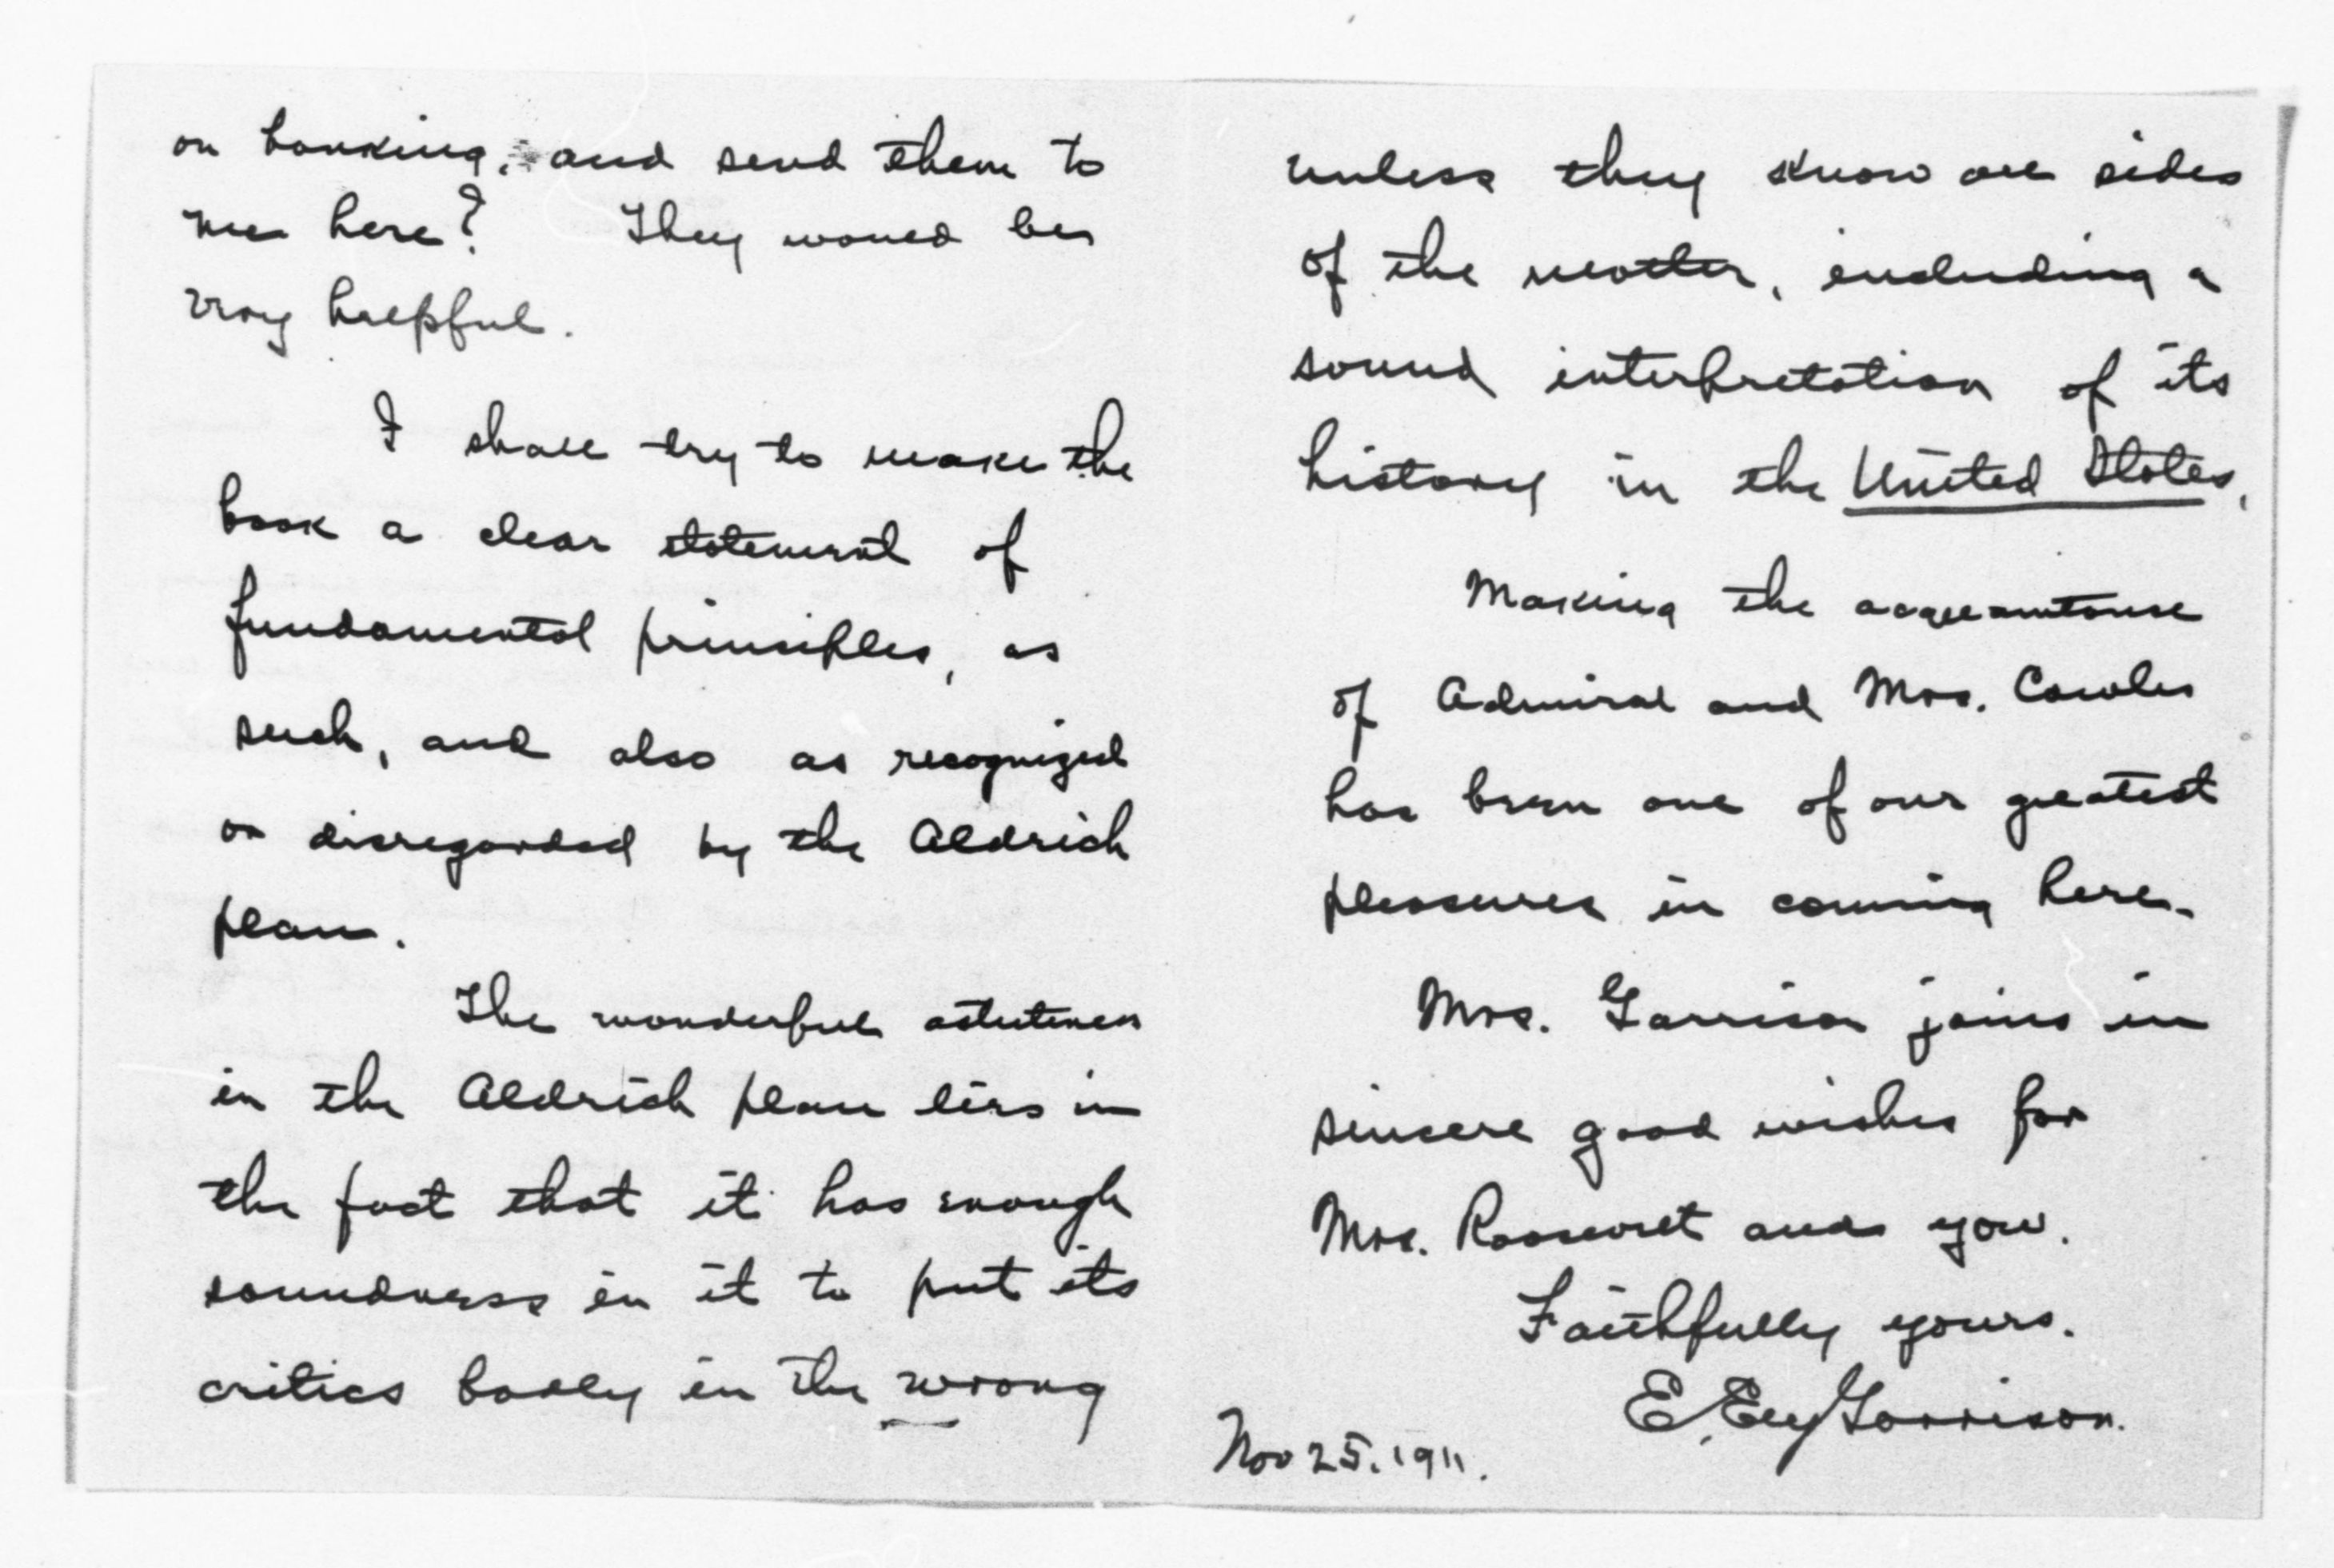 on banking, and send them to
me here? They would be
very helpful.
I shall try to make the
book a clear statement of
fundamental principles, as
such, and also as recognized
or disregarded by the Aldrich
plan.
The wonderful astuteness
in the Aldrich plan lies in
the fact that it has enough
soundness in it to put its
critics badly in the wrong
unless they know all sides
of the matter, including a
sound interpretation of its
history in the United States.
Making the acquaintance
of Admiral and Mrs. Cowles
has been one of our greatest
pleasures in coming here.
Mrs. Garrison joins in
sincere good wishes for
Mrs. Roosevelt and you.
Faithfully yours.
E. Ely Garrison.
Nov 25. 1911.